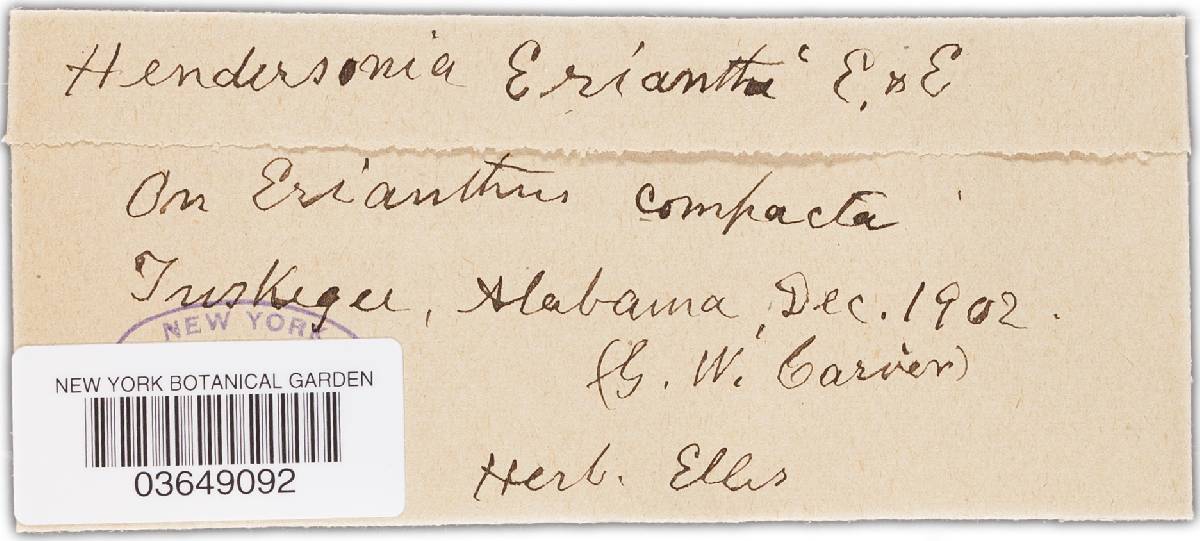 Hendersonia Erianthi E. & E
On Erianthus compacta
Tuskegee, Alabama, Dec. 1902.
(G. W. Carver)
Herb. Ellis
NEW YORK
NEW YORK BOTANICAL GARDEN
03649092